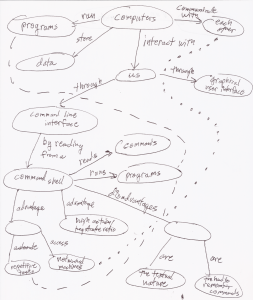 computers
programs
run
communicate
with
each
other
store
data
interact with
us
through
through
graphical
user interface
command line
interface
by reading
from a
commands
reads
command shell
runs
programs
advantage
advantage
disadvantages
high action/
keystroke ratio
automate
access
repetitive
tasks
networked
machines
are
are
the textual
nature
hard to
remember
commands